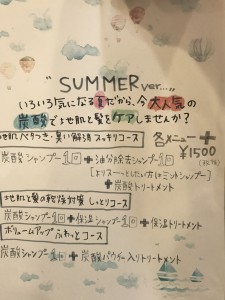 "SUMMER ver...."
いろいろ気になる夏だから、今大人気の
炭酸で地肌と髪をケアしませんか?
地肌べたつき・臭い解消 スッキリコース
各メニュー+
¥1500
(税抜)
炭酸シャンプー1回+油分除去シャンプー1回
[よりスーッとしたい方はミントシャンプー]
+炭酸トリートメント
地肌と髪の乾燥対策 しっとりコース
炭酸シャンプー1回+保湿シャンプー1回+保湿トリートメント
ボリュームアップ ふわっとコース
炭酸シャンプー1回+炭酸パウダー入りトリートメント